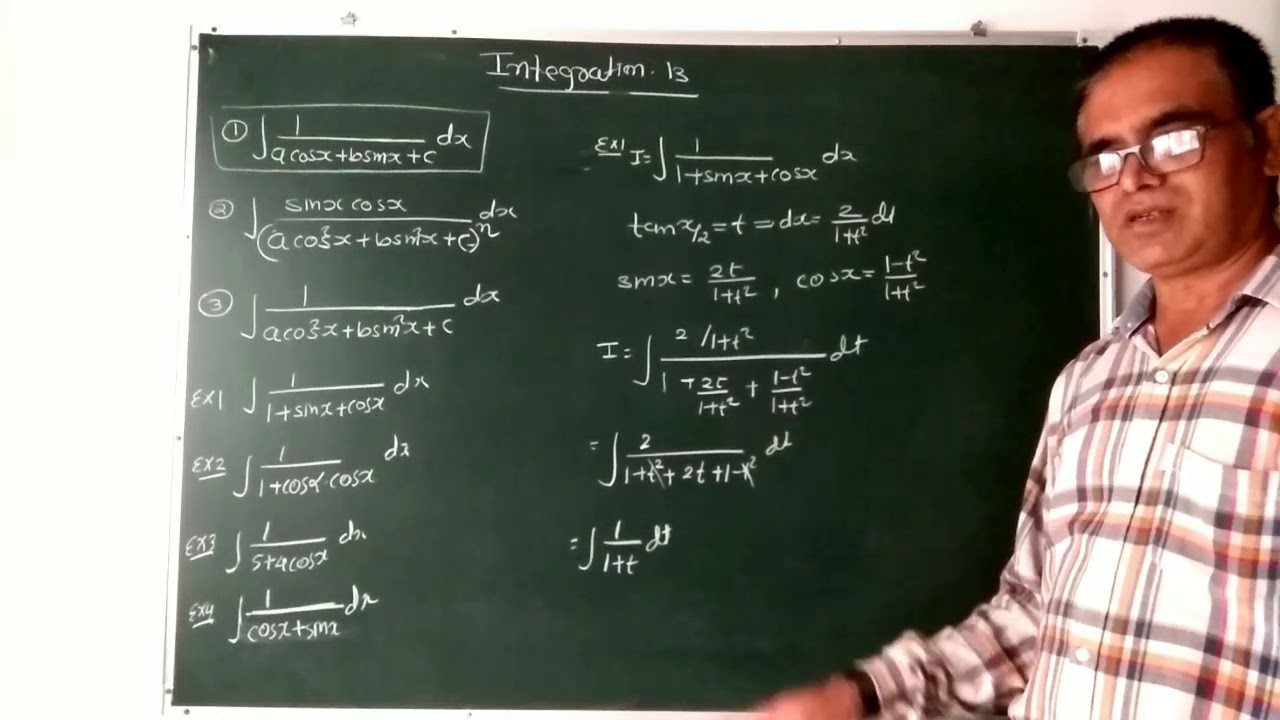 Integration. 13
① ∫ 1/(acosx+bsinx+c) dx
② ∫ sinx cosx/(acos²x+bsin²x+c)ⁿ dx
③ ∫ 1/(acos²x+bsin²x+c) dx
Ex1 ∫ 1/(1+sinx+cosx) dx
Ex2 ∫ 1/(1+cosα·cosx) dx
Ex3 ∫ 1/(5+4cosx) dx
Ex4 ∫ 1/(cosx+sinx) dx
Ex1 I= ∫ 1/(1+sinx+cosx) dx
tan x/2 = t ⇒ dx = 2/(1+t²) dt
sinx = 2t/(1+t²), cosx = (1-t²)/(1+t²)
I = ∫ (2/1+t²)/(1 + 2t/(1+t²) + (1-t²)/(1+t²)) dt
= ∫ 2/(1+t²+2t+1-t²) dt
= ∫ 1/(1+t) dt